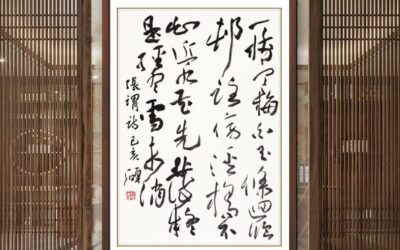 一樹寒梅白玉條迥臨
邨路傍溪橋不
知近水花先發疑
是經冬雪未消
張謂詩己亥